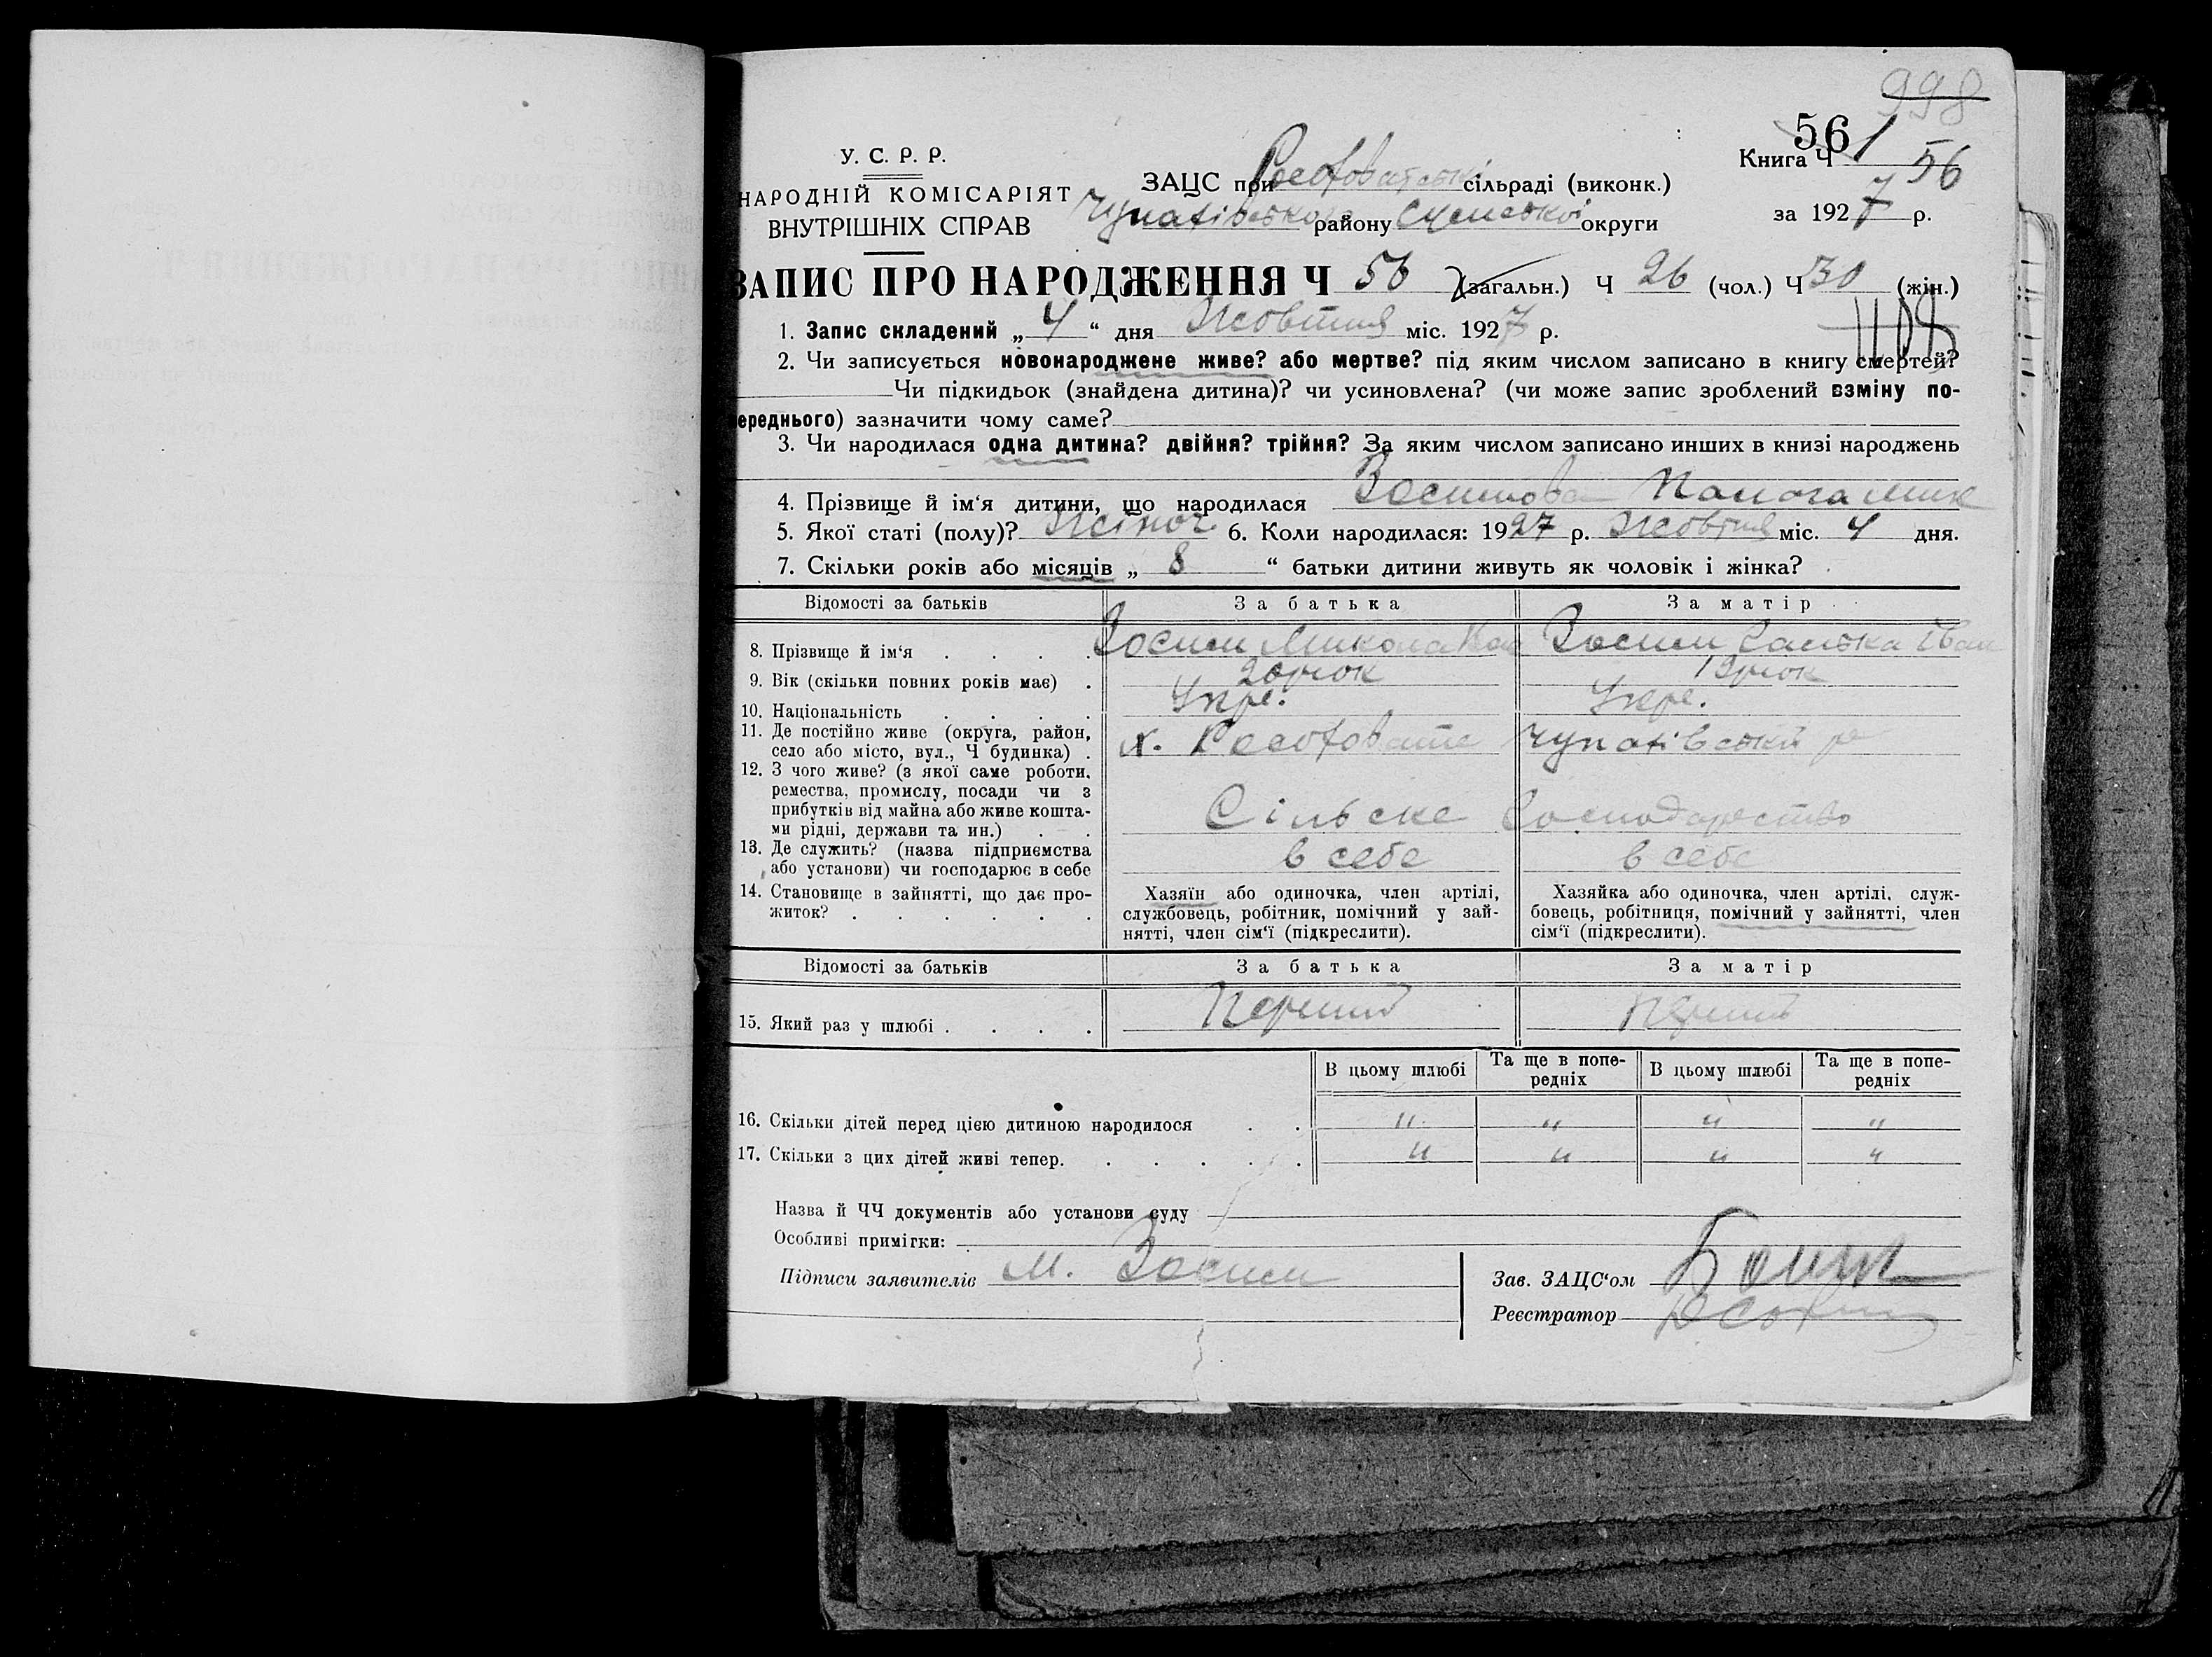 998
561
У. С. Р. Р.
Книга Ч 1 56
НАРОДНІЙ КОМІСАРІЯТ
ВНУТРІШНІХ СПРАВ
ЗАЦС при сільраді (виконк.)
району Сумської округи
за 1927 р.
ЗАПИС ПРО НАРОДЖЕННЯ Ч 56 (загальн.) Ч 26 (чол.) Ч 30 (жін.)
1. Запис складений „ 4 “ дня Жовтня міс. 1927 р.
2. Чи записується новонароджене живе? або мертве? під яким числом записано в книгу смертей?
Чи підкидьок (знайдена дитина)? чи усиновлена? (чи може запис зроблений взміну по-
ереднього) зазначити чому саме?
3. Чи народилася одна дитина? двійня? трійня? За яким числом записано инших в книзі народжень
4. Прізвище й ім‘я дитини, що народилася
5. Якої статі (полу)? Жіноч. 6. Коли народилася: 1927 р. Жовтня міс. 4 дня.
7. Скільки років або місяців „ 8 “ батьки дитини живуть як чоловік і жінка?
Відомості за батьків За батька За матір
8. Прізвище й ім‘я . . . . Зосим Микола Зосим Іван
9. Вік (скільки повних років має) . 20 рок 19 рок
10. Національність . . . . Укре. Укре.
11. Де постійно живе (округа, район,
село або місто, вул., Ч будинка) . х.
12. З чого живе? (з якої саме роботи,
ремества, промислу, посади чи з
прибутків від майна або живе кошта-
ми рідні, держави та ин.) . . Сільске Господарство
13. Де служить? (назва підприємства
або установи) чи господарює в себе в себе в себе
14. Становище в зайнятті, що дає про-
житок? . . . . . .
Хазяїн або одиночка, член артілі,
службовець, робітник, помічний у зай-
нятті, член сім‘ї (підкреслити).
Хазяйка або одиночка, член артілі, служ-
бовець, робітниця, помічний у зайнятті, член
сім‘ї (підкреслити).
Відомості за батьків За батька За матір
15. Який раз у шлюбі . . . . Перший Перший
В цьому шлюбі Та ще в попе-
редніх В цьому шлюбі Та ще в попе-
редніх
16. Скільки дітей перед цією дитиною народилося . . " " " "
17. Скільки з цих дітей живі тепер. . . . . . " " " "
Назва й ЧЧ документів або установи суду
Особливі примігки:
Підписи заявителів М. Зосим
Зав. ЗАЦС‘ом
Реєстратор